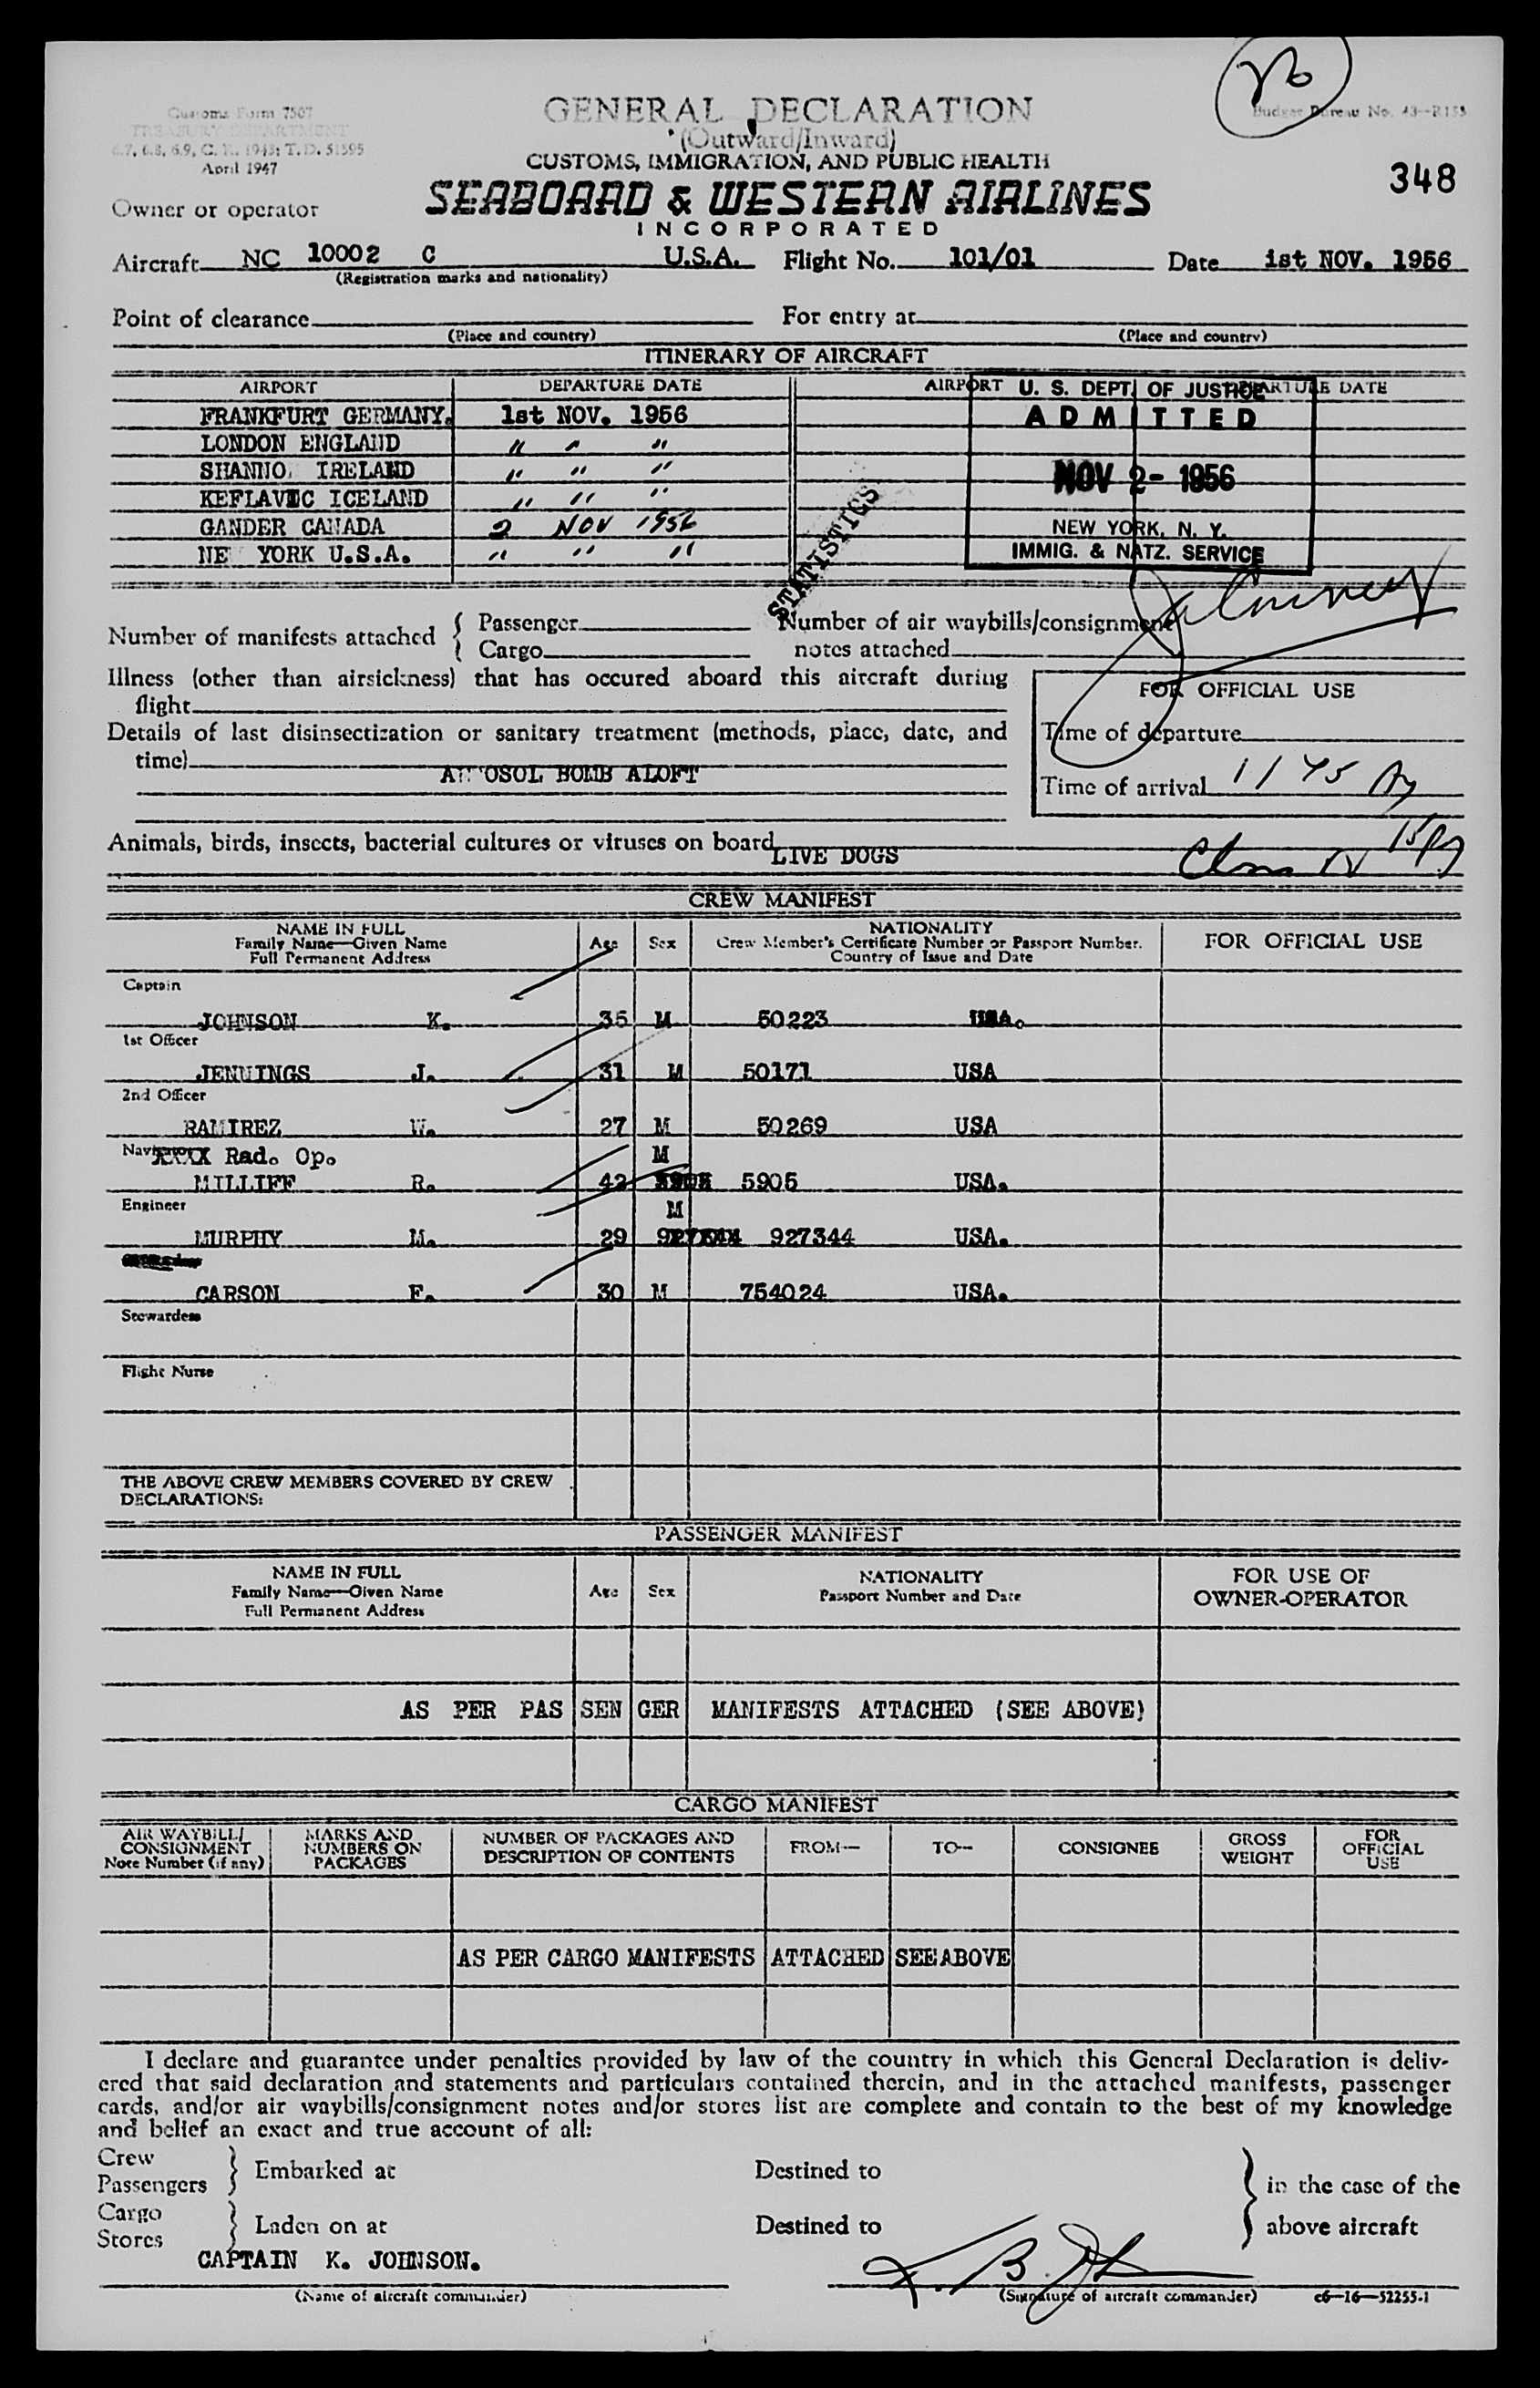 Customs Form 7507
TREASURY DEPARTMENT
April 1947
GENERAL DECLARATION
(Outward/Inward)
CUSTOMS, IMMIGRATION, AND PUBLIC HEALTH
Budget Bureau No. 43-R155
348
Owner or operator
SEABOARD & WESTERN AIRLINES
INCORPORATED
Aircraft NC 10002 C U.S.A. Flight No. 101/01 Date 1st NOV. 1956
(Registration marks and nationality)
Point of clearance For entry at
(Place and country) (Place and country)
ITINERARY OF AIRCRAFT
AIRPORT DEPARTURE DATE AIRPORT DEPARTURE DATE
FRANKFURT GERMANY. 1st NOV. 1956
LONDON ENGLAND " " "
SHANNO IRELAND " " "
KEFLAVIC ICELAND " " "
GANDER CANADA 2 NOV 1956
NE YORK U.S.A. " " "
U. S. DEPT. OF JUSTICE
ADMITTED
NOV 2 - 1956
NEW YORK, N. Y.
IMMIG. & NATZ. SERVICE
STATISTICS
Number of manifests attached { Passenger
Cargo
Number of air waybills/consignment
notes attached
Illness (other than airsickness) that has occured aboard this aircraft during
flight
Details of last disinsectization or sanitary treatment (methods, place, date, and
time)
BOMB ALOFT
FOR OFFICIAL USE
Time of departure
Time of arrival 1145
Animals, birds, insects, bacterial cultures or viruses on board
LIVE DOGS
CREW MANIFEST
NAME IN FULL
Family Name—Given Name
Full Permanent Address
Age Sex
NATIONALITY
Crew Member's Certificate Number or Passport Number.
Country of Issue and Date
FOR OFFICIAL USE
Captain
JOHNSON K. 35 M 50223 USA.
1st Officer
JENNINGS J. 31 M 50171 USA
2nd Officer
RAMIREZ W. 27 M 50269 USA
Navigator XXXX Rad. Op. M
MILLIFF R. 42 5905 USA.
Engineer M
MURPHY M. 29 927344 USA.
CARSON F. 30 M 754024 USA.
Stewardess
Flight Nurse
THE ABOVE CREW MEMBERS COVERED BY CREW
DECLARATIONS:
PASSENGER MANIFEST
NAME IN FULL
Family Name—Given Name
Full Permanent Address
Age Sex
NATIONALITY
Passport Number and Date
FOR USE OF
OWNER-OPERATOR
AS PER PAS SEN GER MANIFESTS ATTACHED (SEE ABOVE)
CARGO MANIFEST
AIR WAYBILL/
CONSIGNMENT
Note Number (if any)
MARKS AND
NUMBERS ON
PACKAGES
NUMBER OF PACKAGES AND
DESCRIPTION OF CONTENTS
FROM— TO— CONSIGNEE
GROSS
WEIGHT
FOR
OFFICIAL
USE
AS PER CARGO MANIFESTS ATTACHED SEE ABOVE
I declare and guarantee under penalties provided by law of the country in which this General Declaration is deliv-
ered that said declaration and statements and particulars contained therein, and in the attached manifests, passenger
cards, and/or air waybills/consignment notes and/or stores list are complete and contain to the best of my knowledge
and belief an exact and true account of all:
Crew
Passengers } Embarked at Destined to
Cargo
Stores } Laden on at Destined to
} in the case of the
above aircraft
CAPTAIN K. JOHNSON.
(Name of aircraft commander) (Signature of aircraft commander) c6—16—52255-1